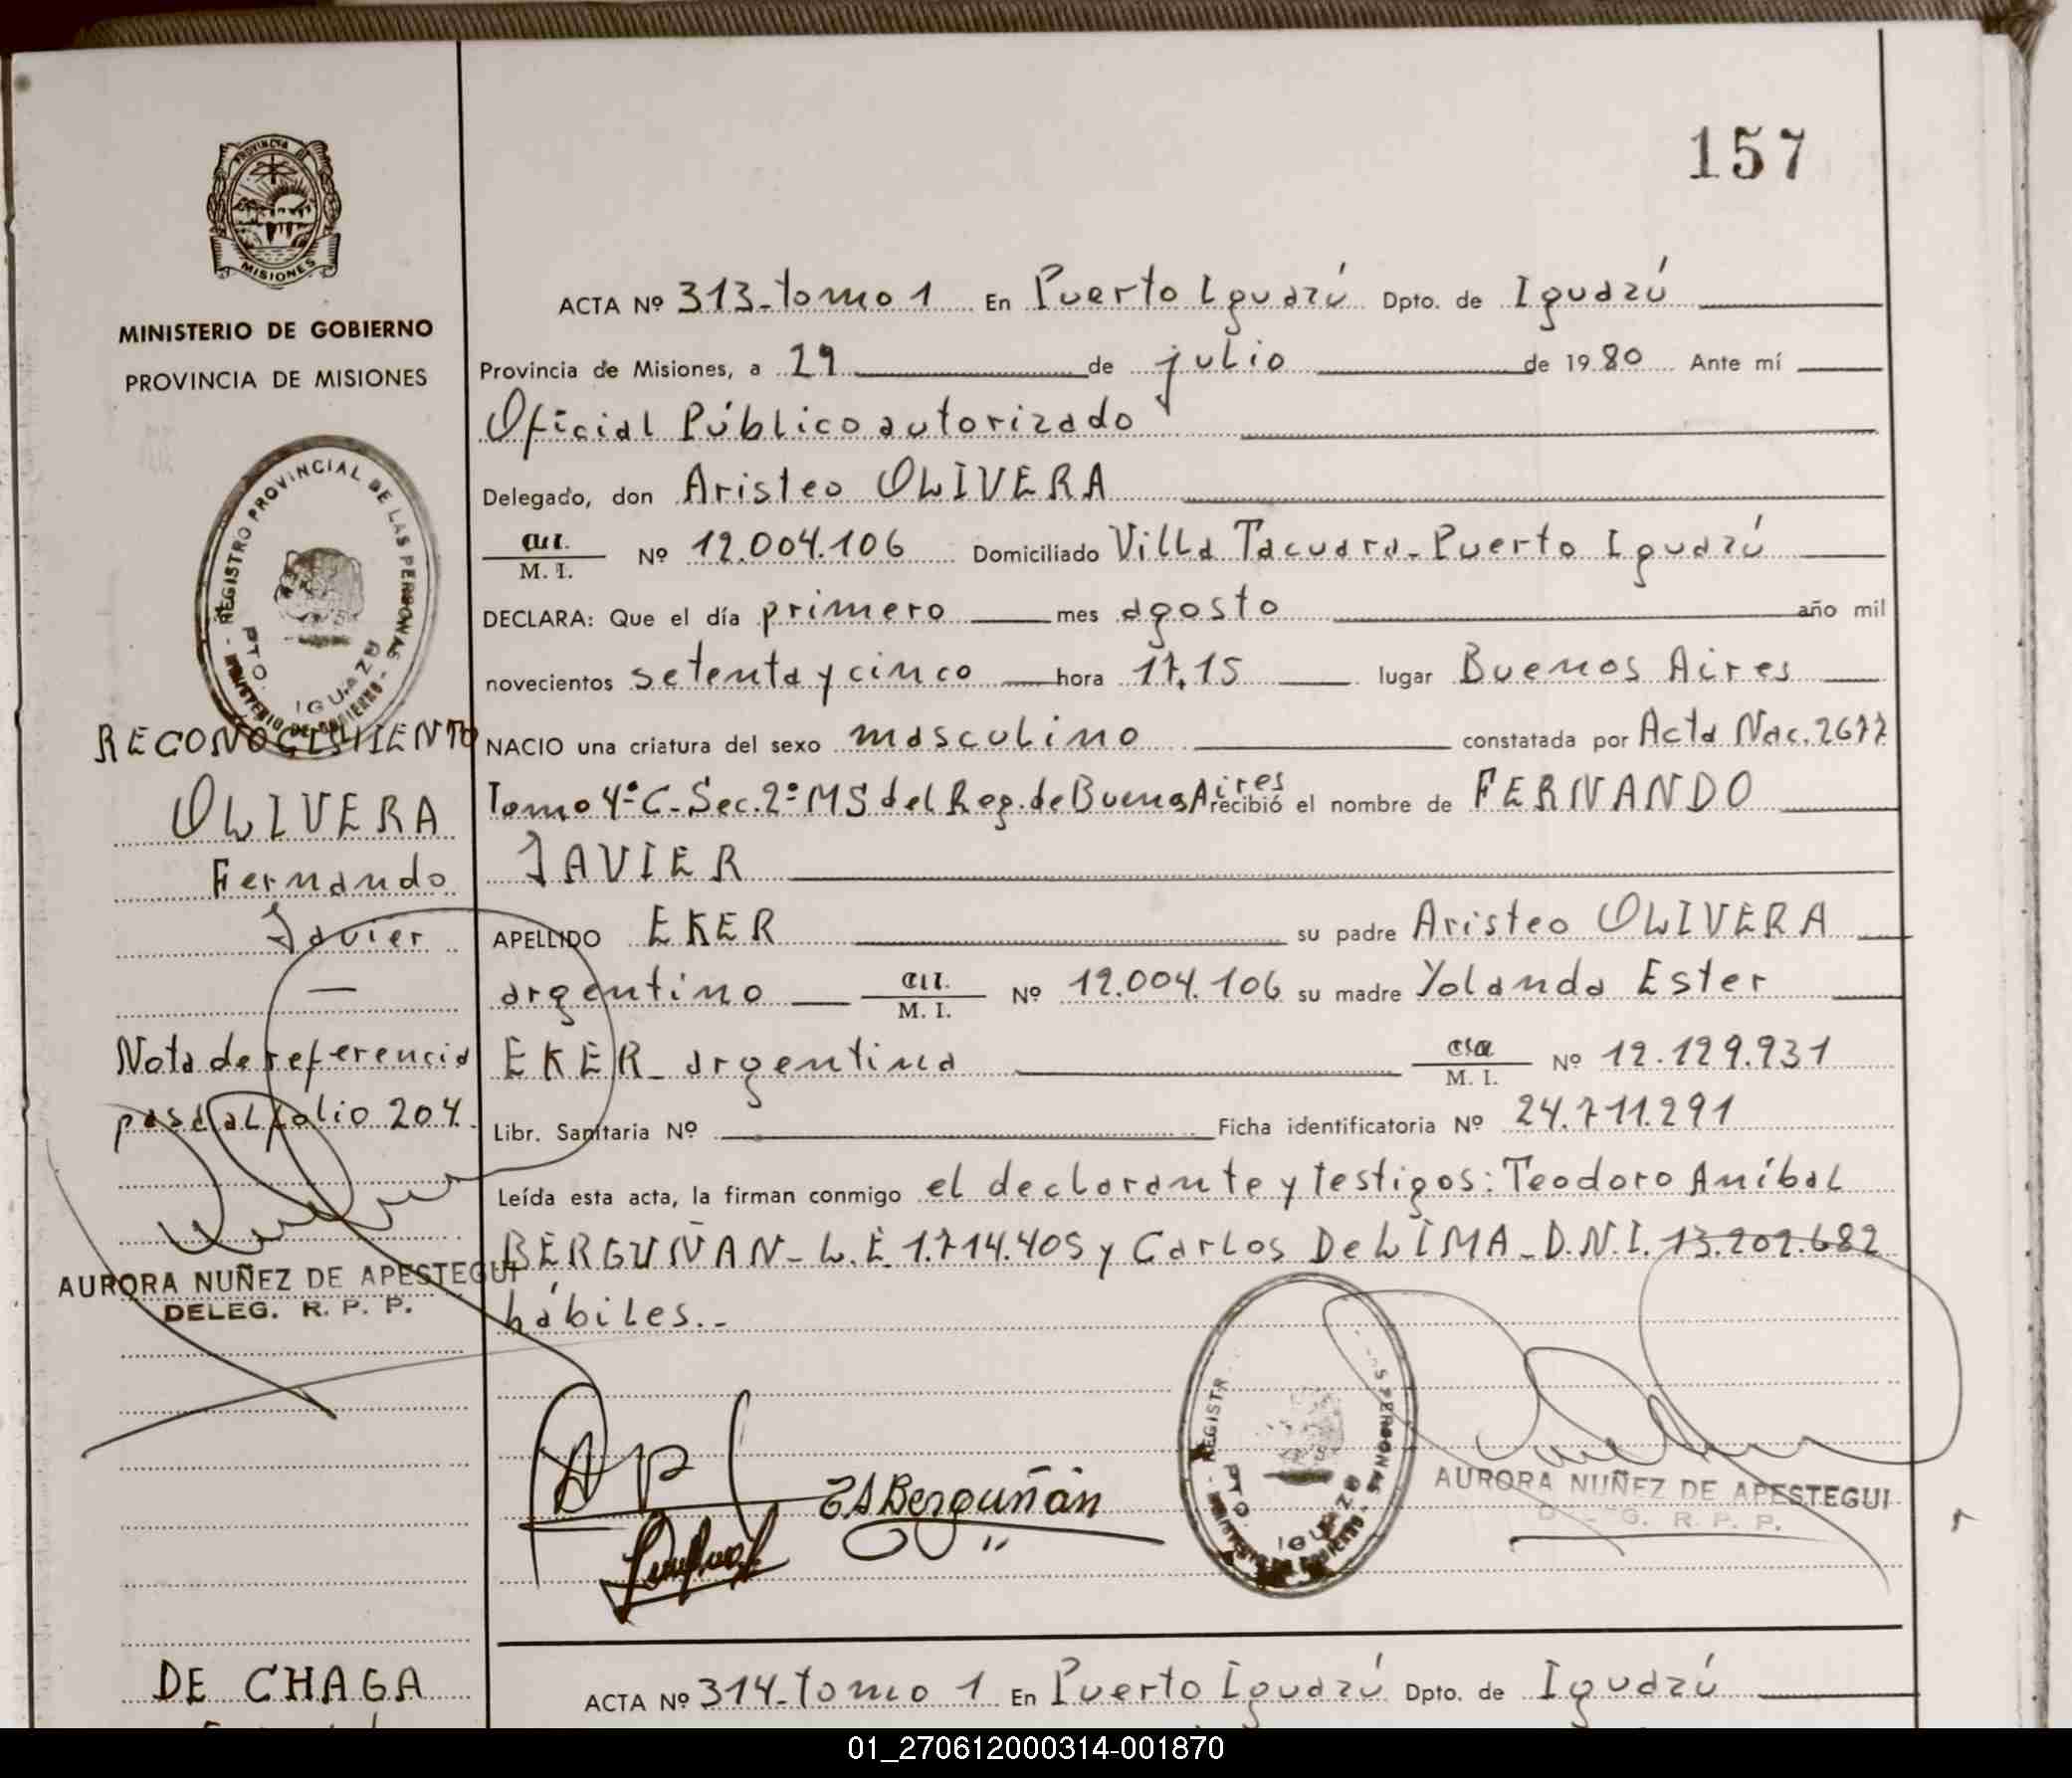 157
PROVINCIA DE
MISIONES
MINISTERIO DE GOBIERNO
PROVINCIA DE MISIONES
REGISTRO PROVINCIAL DE LAS PERSONAS
PTO. IGUAZU
MINISTERIO DE GOBIERNO
RECONOCIMIENTO
OLIVERA
Fernando
Javier
—
Nota de referencia
pasa al folio 204.
AURORA NUÑEZ DE APESTEGUI
DELEG. R. P. P.
ACTA Nº 313-tomo 1 En Puerto Iguazú Dpto. de Iguazú
Provincia de Misiones, a 29 de julio de 1980 Ante mí
Oficial Público autorizado
Delegado, don Aristeo OLIVERA
M. I. Nº 12.004.106 Domiciliado Villa Tacuara-Puerto Iguazú
DECLARA: Que el día primero mes agosto año mil
novecientos setenta y cinco hora 17,15 lugar Buenos Aires
NACIO una criatura del sexo masculino constatada por Acta Nac. 2677
Tomo 4º C-Sec. 2º MS del Reg. de Buenos Aires recibió el nombre de FERNANDO
JAVIER
APELLIDO EKER su padre Aristeo OLIVERA
argentino M. I. Nº 12.004.106 su madre Yolanda Ester
EKER- argentina M. I. Nº 12.129.931
Libr. Sanitaria Nº Ficha identificatoria Nº 24.711.291
Leída esta acta, la firman conmigo el declarante y testigos: Teodoro Aníbal
BERGUÑAN- L.E. 1.714.405 y Carlos De LIMA- D.N.I. 13.202.682
hábiles.-
T A Berguñán
REGISTR PERSONAS
PTO. IGUAZU
AURORA NUÑEZ DE APESTEGUI
G. R. P. P.
DE CHAGA
ACTA Nº 314-tomo 1 En Puerto Iguazú Dpto. de Iguazú
01_270612000314-001870